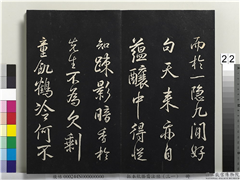 而於一隐几閒好
句天来亦自
蕴釀中得從
知疎影暗香於
先生不為久剩
童飢鶴冷何不
22